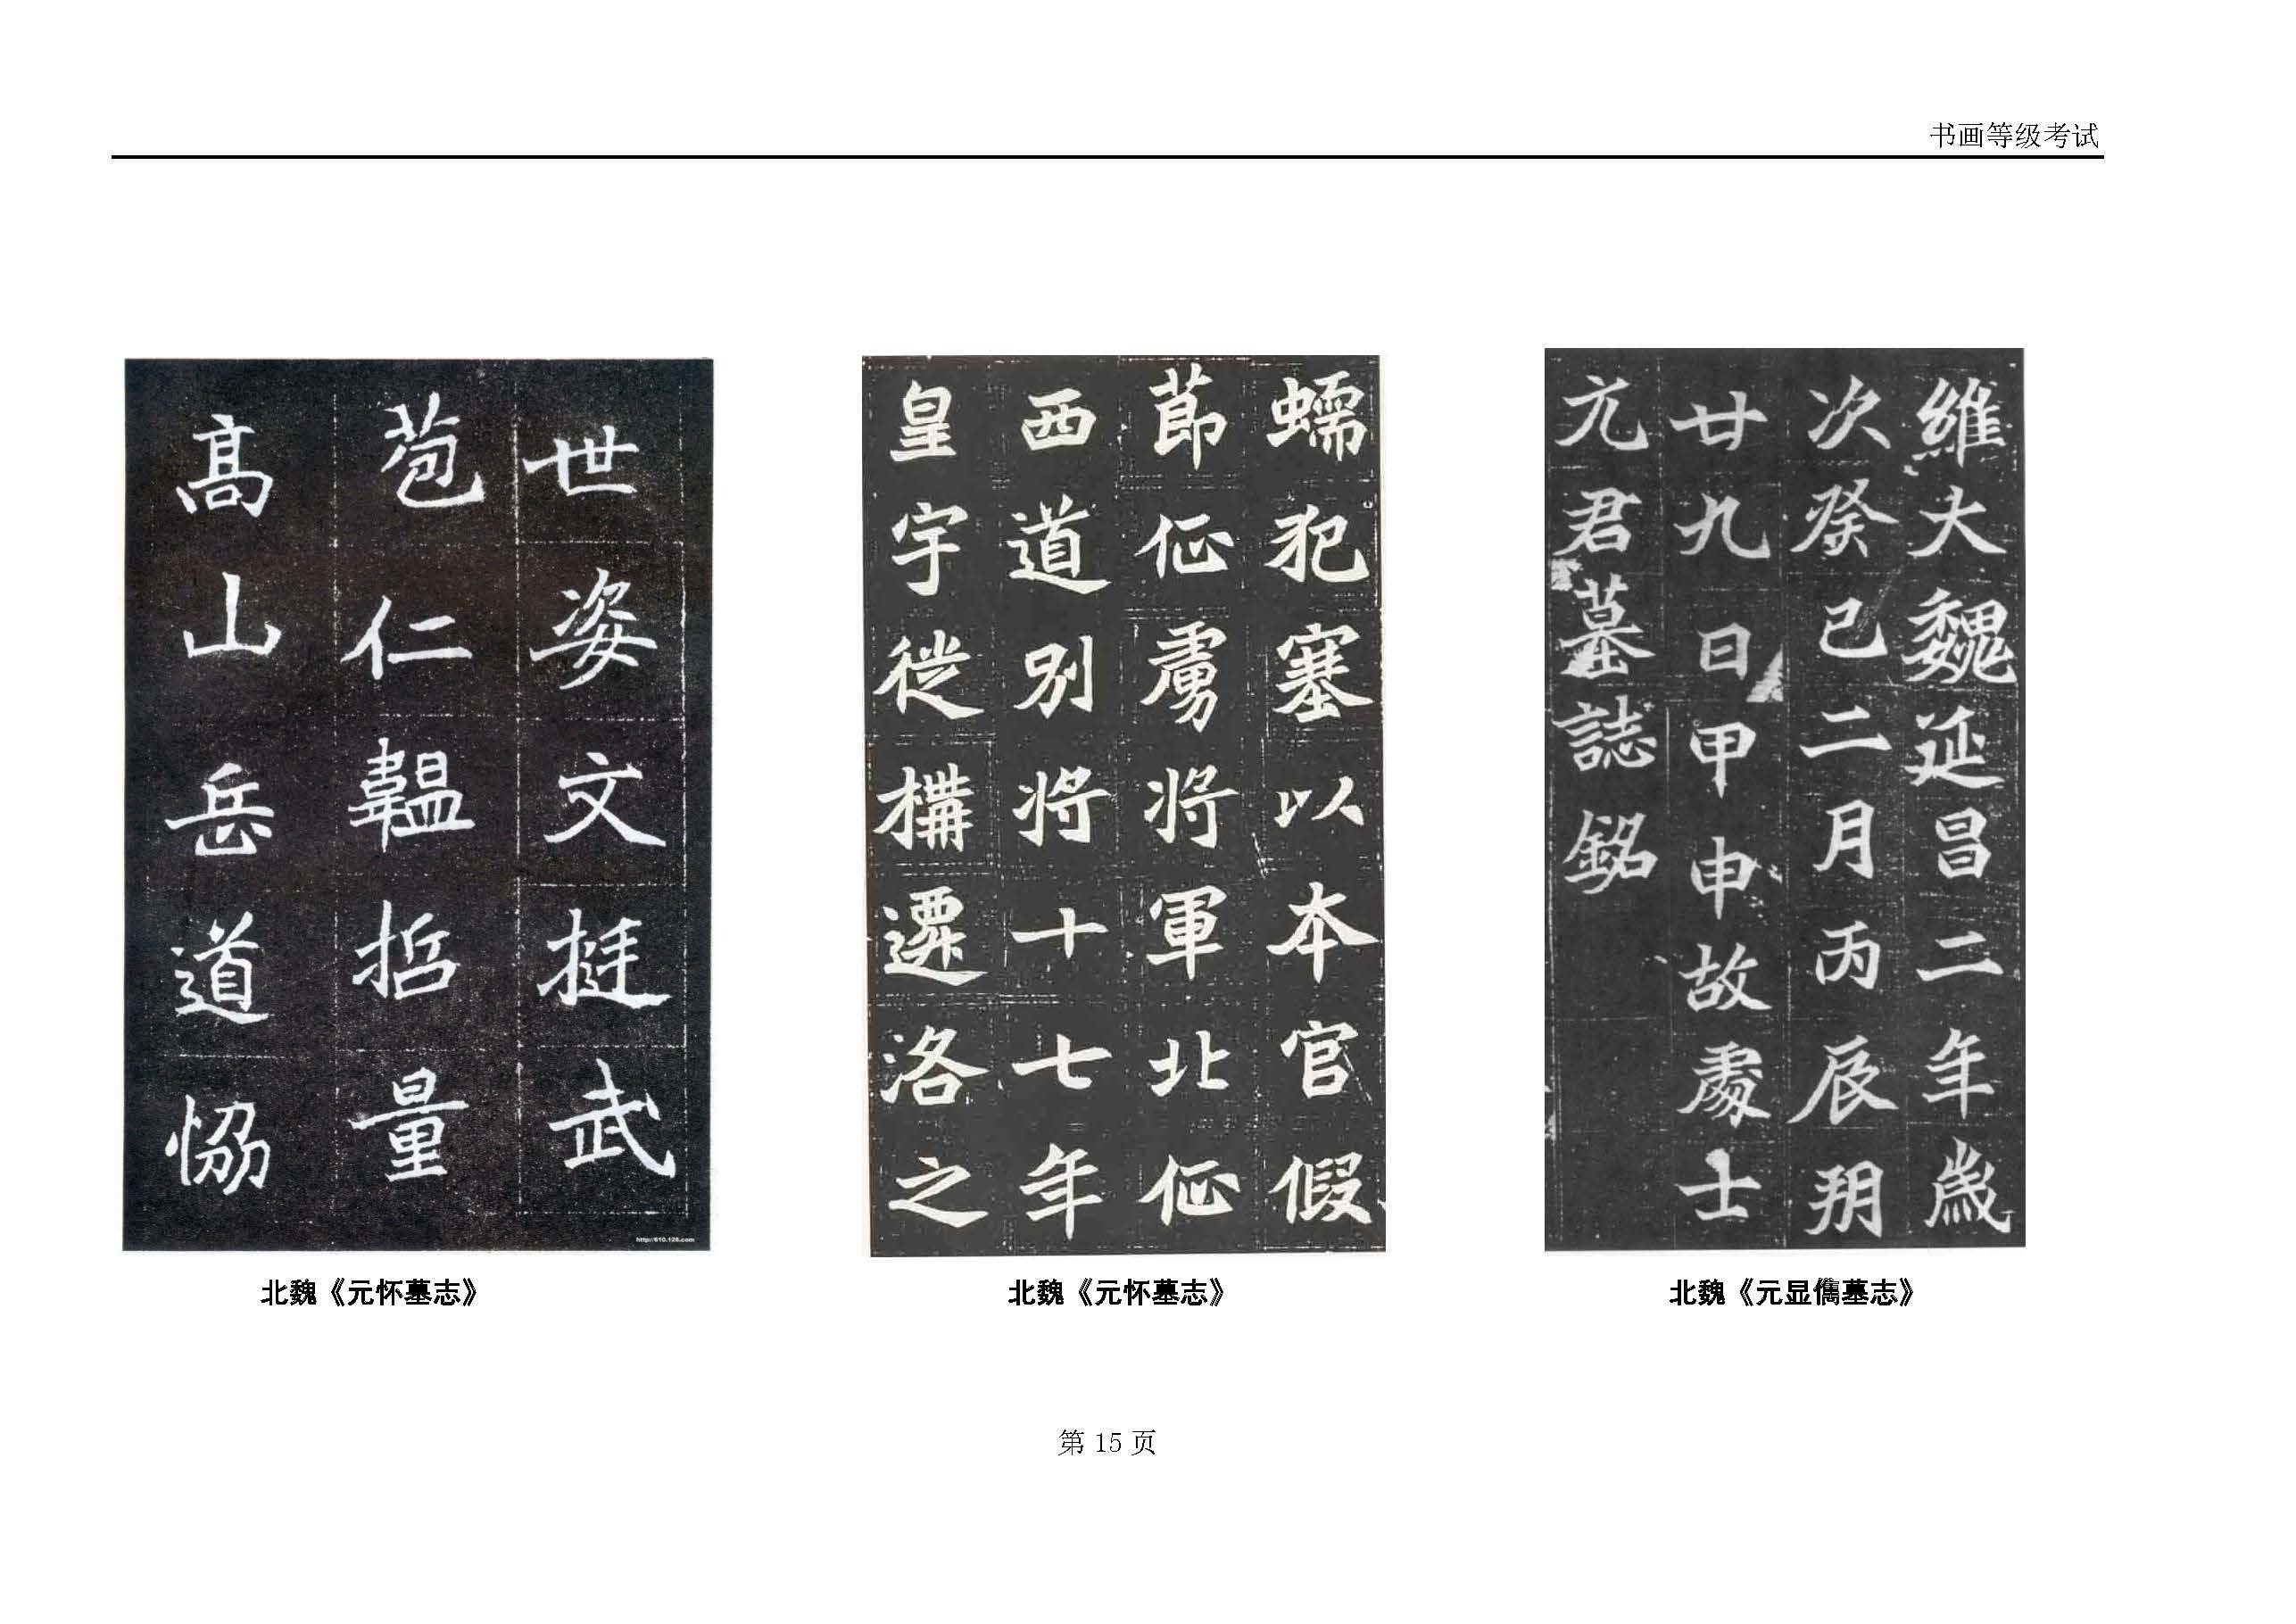 书画等级考试
世姿文挺武
苞仁韞哲量
高山岳道恊
http://610.126.com
蠕犯塞以本官假
莭征虜将軍北征
西道别将十七年
皇宇徙構遷洛之
維大魏延昌二年歲
次癸巳二月丙辰玥
廿九日甲申故處士
元君墓誌銘
北魏《元怀墓志》
北魏《元怀墓志》
北魏《元显儁墓志》
第 15 页